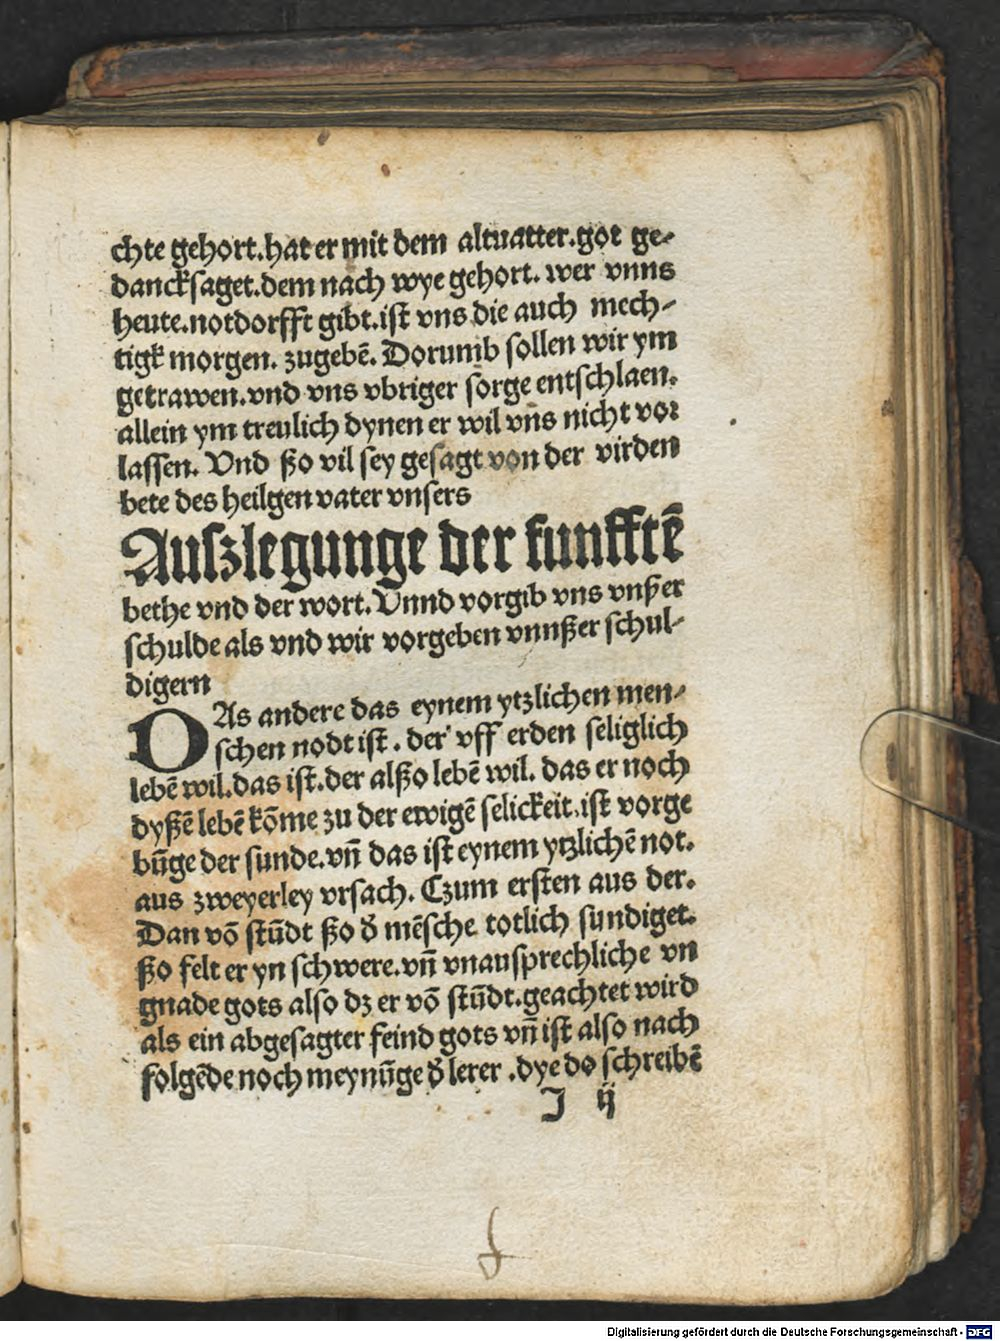 chte gehort.hat er mit dem altuatter.got ge-
dancksaget.dem nach wye gehort. wer vnns
heute.notdorfft gibt.ist vns die auch mech-
tigk morgen. zugebē. Dorumb sollen wir ym
getrawen.vnd vns vbriger sorge entschlaen.
allein ym treulich dynen er wil vns nicht vor
lassen. Vnd ßo vil sey gesagt von der virden
bete des heilgen vater vnsers
Auszlegunge der funfftē
bethe vnd der wort. Vnnd vorgib vns vnßer
schulde als vnd wir vorgeben vnnßer schul-
digern
DAs andere das eynem ytzlichen men-
schen nodt ist . der vff erden seliglich
lebē wil.das ist.der alßo lebē wil. das er noch
dyßē lebē kōme zu der ewigē selickeit.ist vorge
būge der sunde.vn̄ das ist eynem ytzlichē not.
aus zweyerley vrsach. Czum ersten aus der.
Dan vō stūdt ßo d̕ mēsche totlich sundiget.
ßo felt er yn schwere.vn̄ vnausprechliche vn
gnade gots also dz er vō stūdt.geachtet wird
als ein abgesagter feind gots vn̄ ist also nach
folgēde noch meynūge d̕ lerer .dye do schreibē
J ij
Digitalisierung gefördert durch die Deutsche Forschungsgemeinschaft - DFG